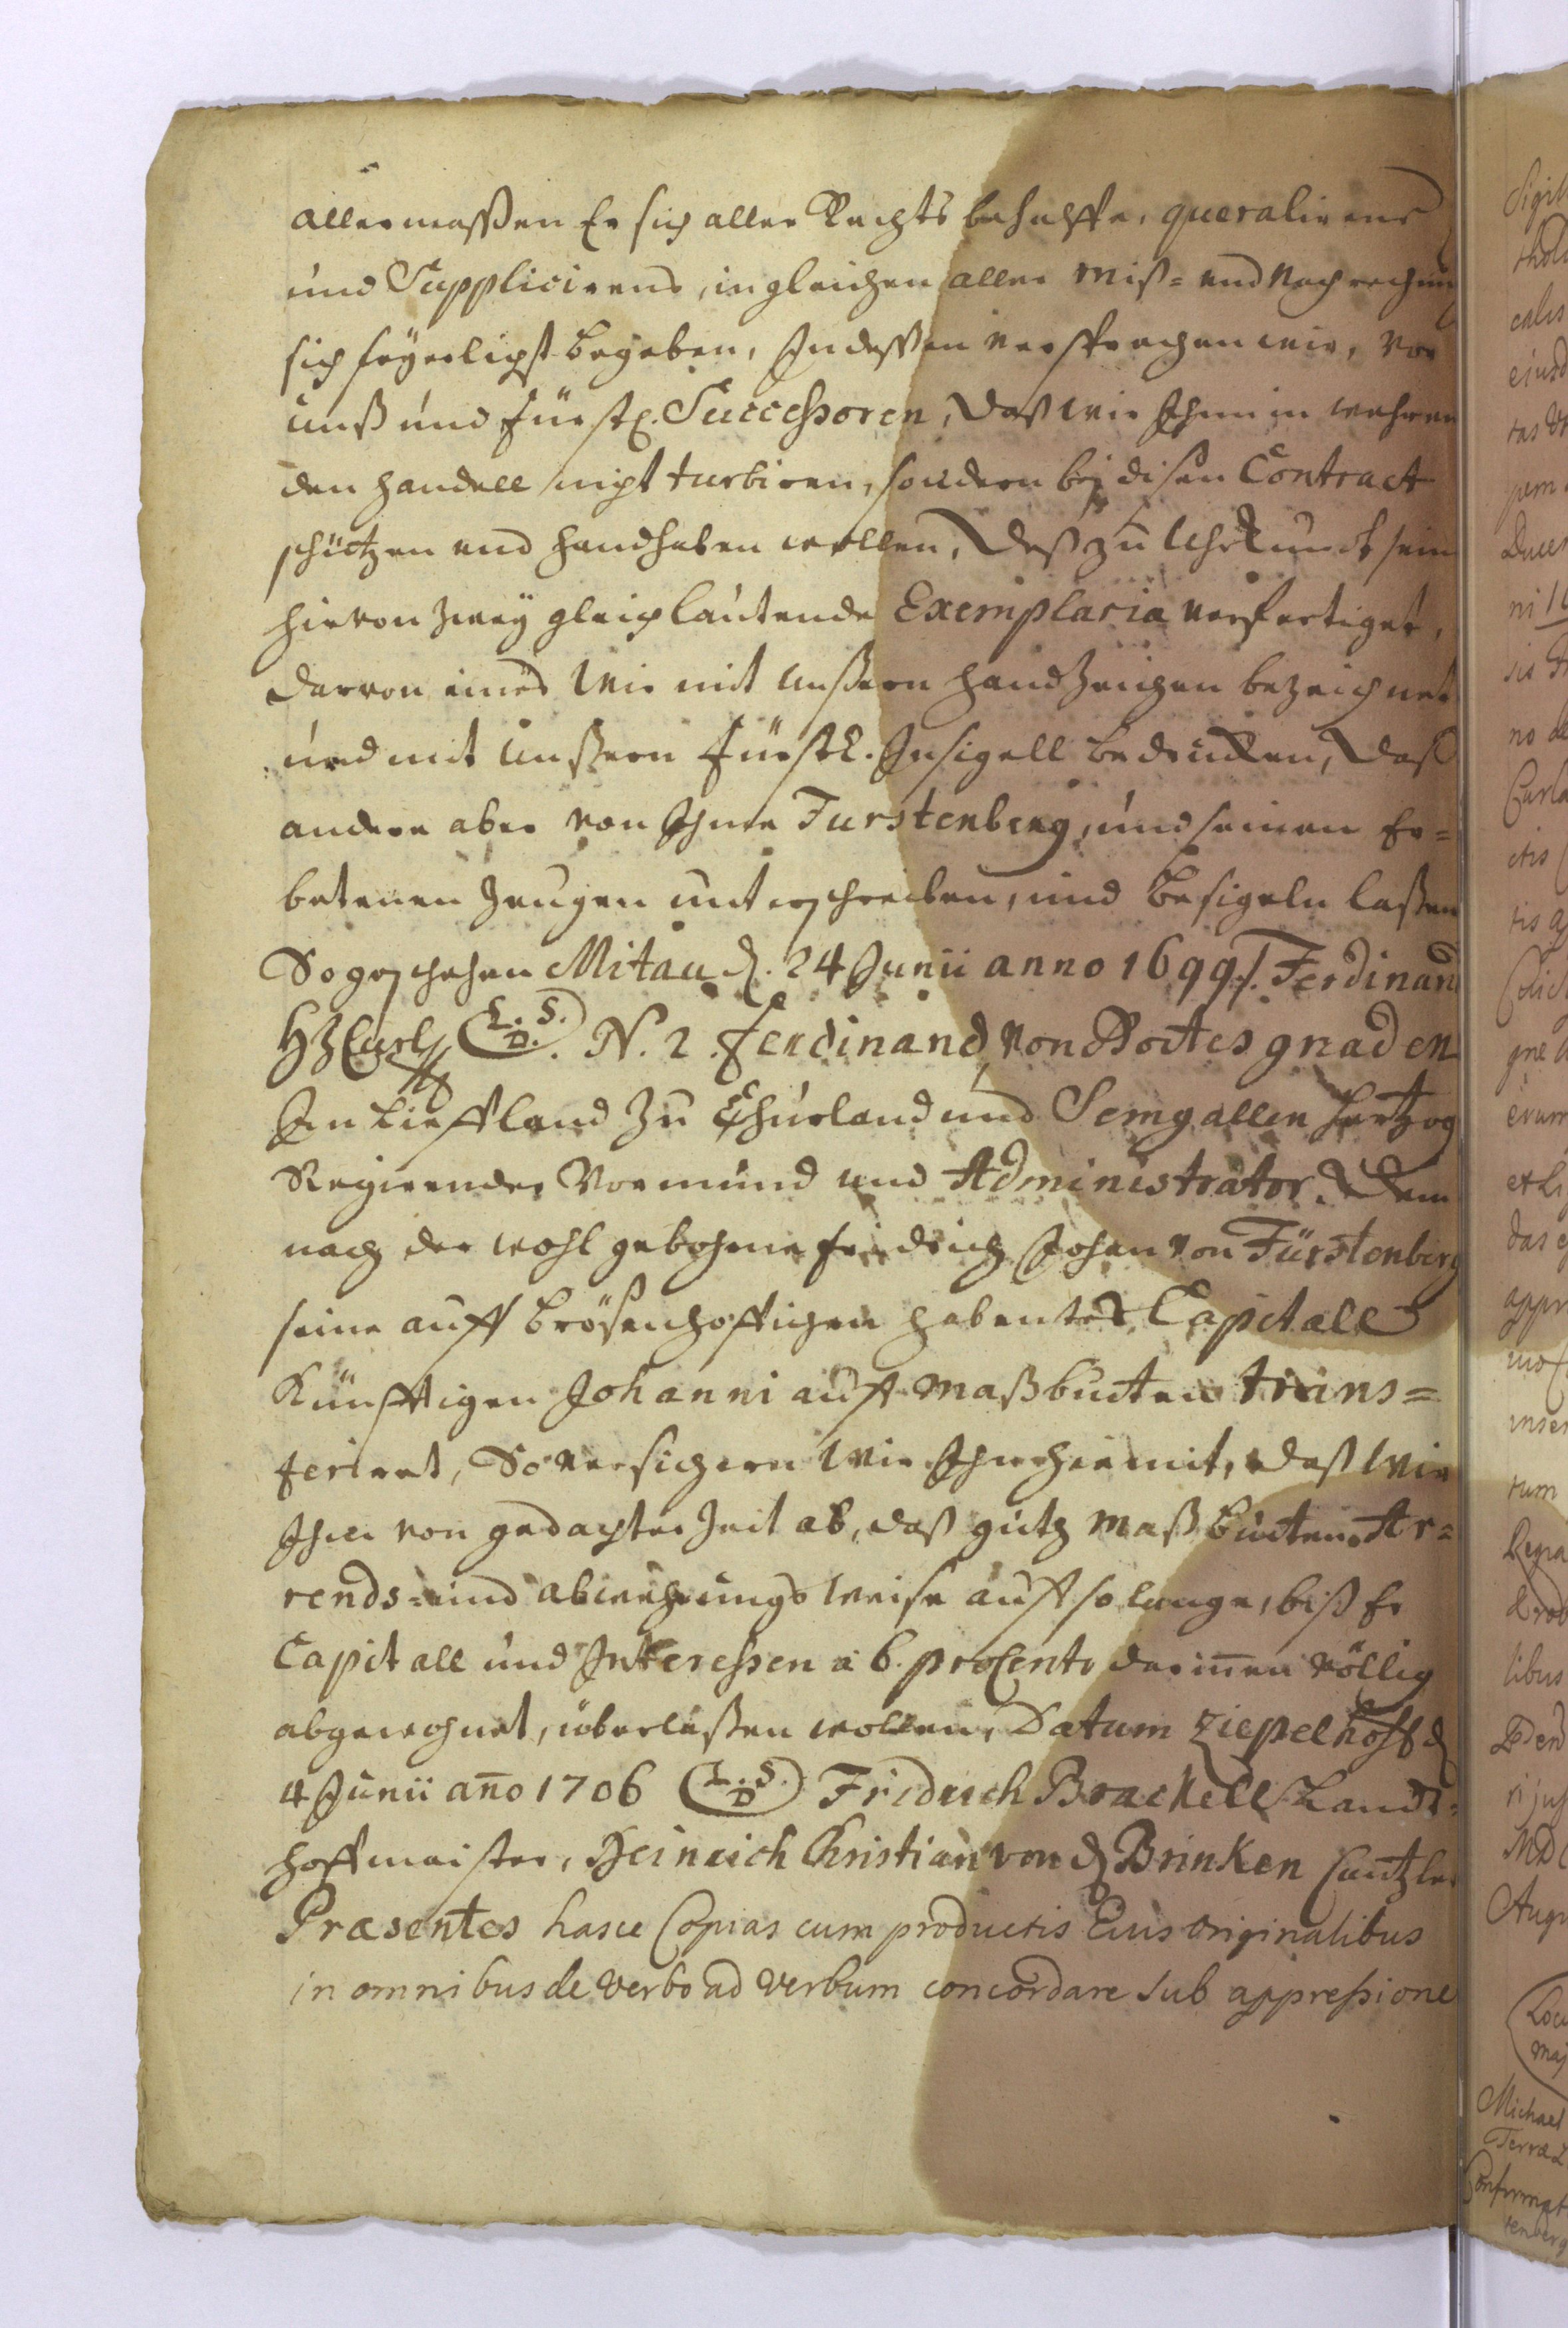 allermaßen Er sich aller Rechts behelffe, querulirens
und Supplicirens, ingleichen aller miß= und Nachrechnung
sich feyerlichst begeben, Indeßen versprechen wir, vor
unß und Fürstl. Successoren, daß wir Ihm in wehren
den handell nicht turbiren, sondern bej disen Contract
schützen und handhaben wollen, Deß zu Uhrkundt sein
hirvon zwey gleichlautende Exemplaria verfertiget,
darvon eines Wir mit Unßern handzeichen bezeichnet
und mit Unßern Fürstl. Insigell bedrucken, daß
andere aber von Ihme Furstenberg, und seinen Er=
betenen Zeugen unterschreiben, und besigeln laßen
So geschehen Mitau d. 24 Junii anno 1699 /. Ferdinand
HZCurl L.S.D. N. 2. Ferdinand, von Gottes gnaden
In Lieffland zu Churland und Semgallen Hertzog
Regierender Vormund und Administrator. Dem
nach der wohl gebohrne Fridrich Johan von Fürstenberg
seine auff Größenhoffschen habentes Capitall
Künfftigen Johanni auff Maßbutten trans=
ferirret, So versichern Wir Ihn hiermit, daß Wir
Ihm von gedachter Zeit ab, daß gutz Maßbutten Ar=
rends= und abwohnungs Weise auff so lange, biß Er
Capitall und Interessen a 6. proCento darinnen völlig
abgewohnet, überlaßen wollen, Datum Ziepelhoff d
4 Junii ano 1706 L.S.D Fridrich Brackell Landt=
hoffmeister, Heinrich Christian von d Brinken Cantzler
Præsentes hasce Copias cum productis Eius originalibus
in omnibus de verbo ad verbum concordare sub appressione